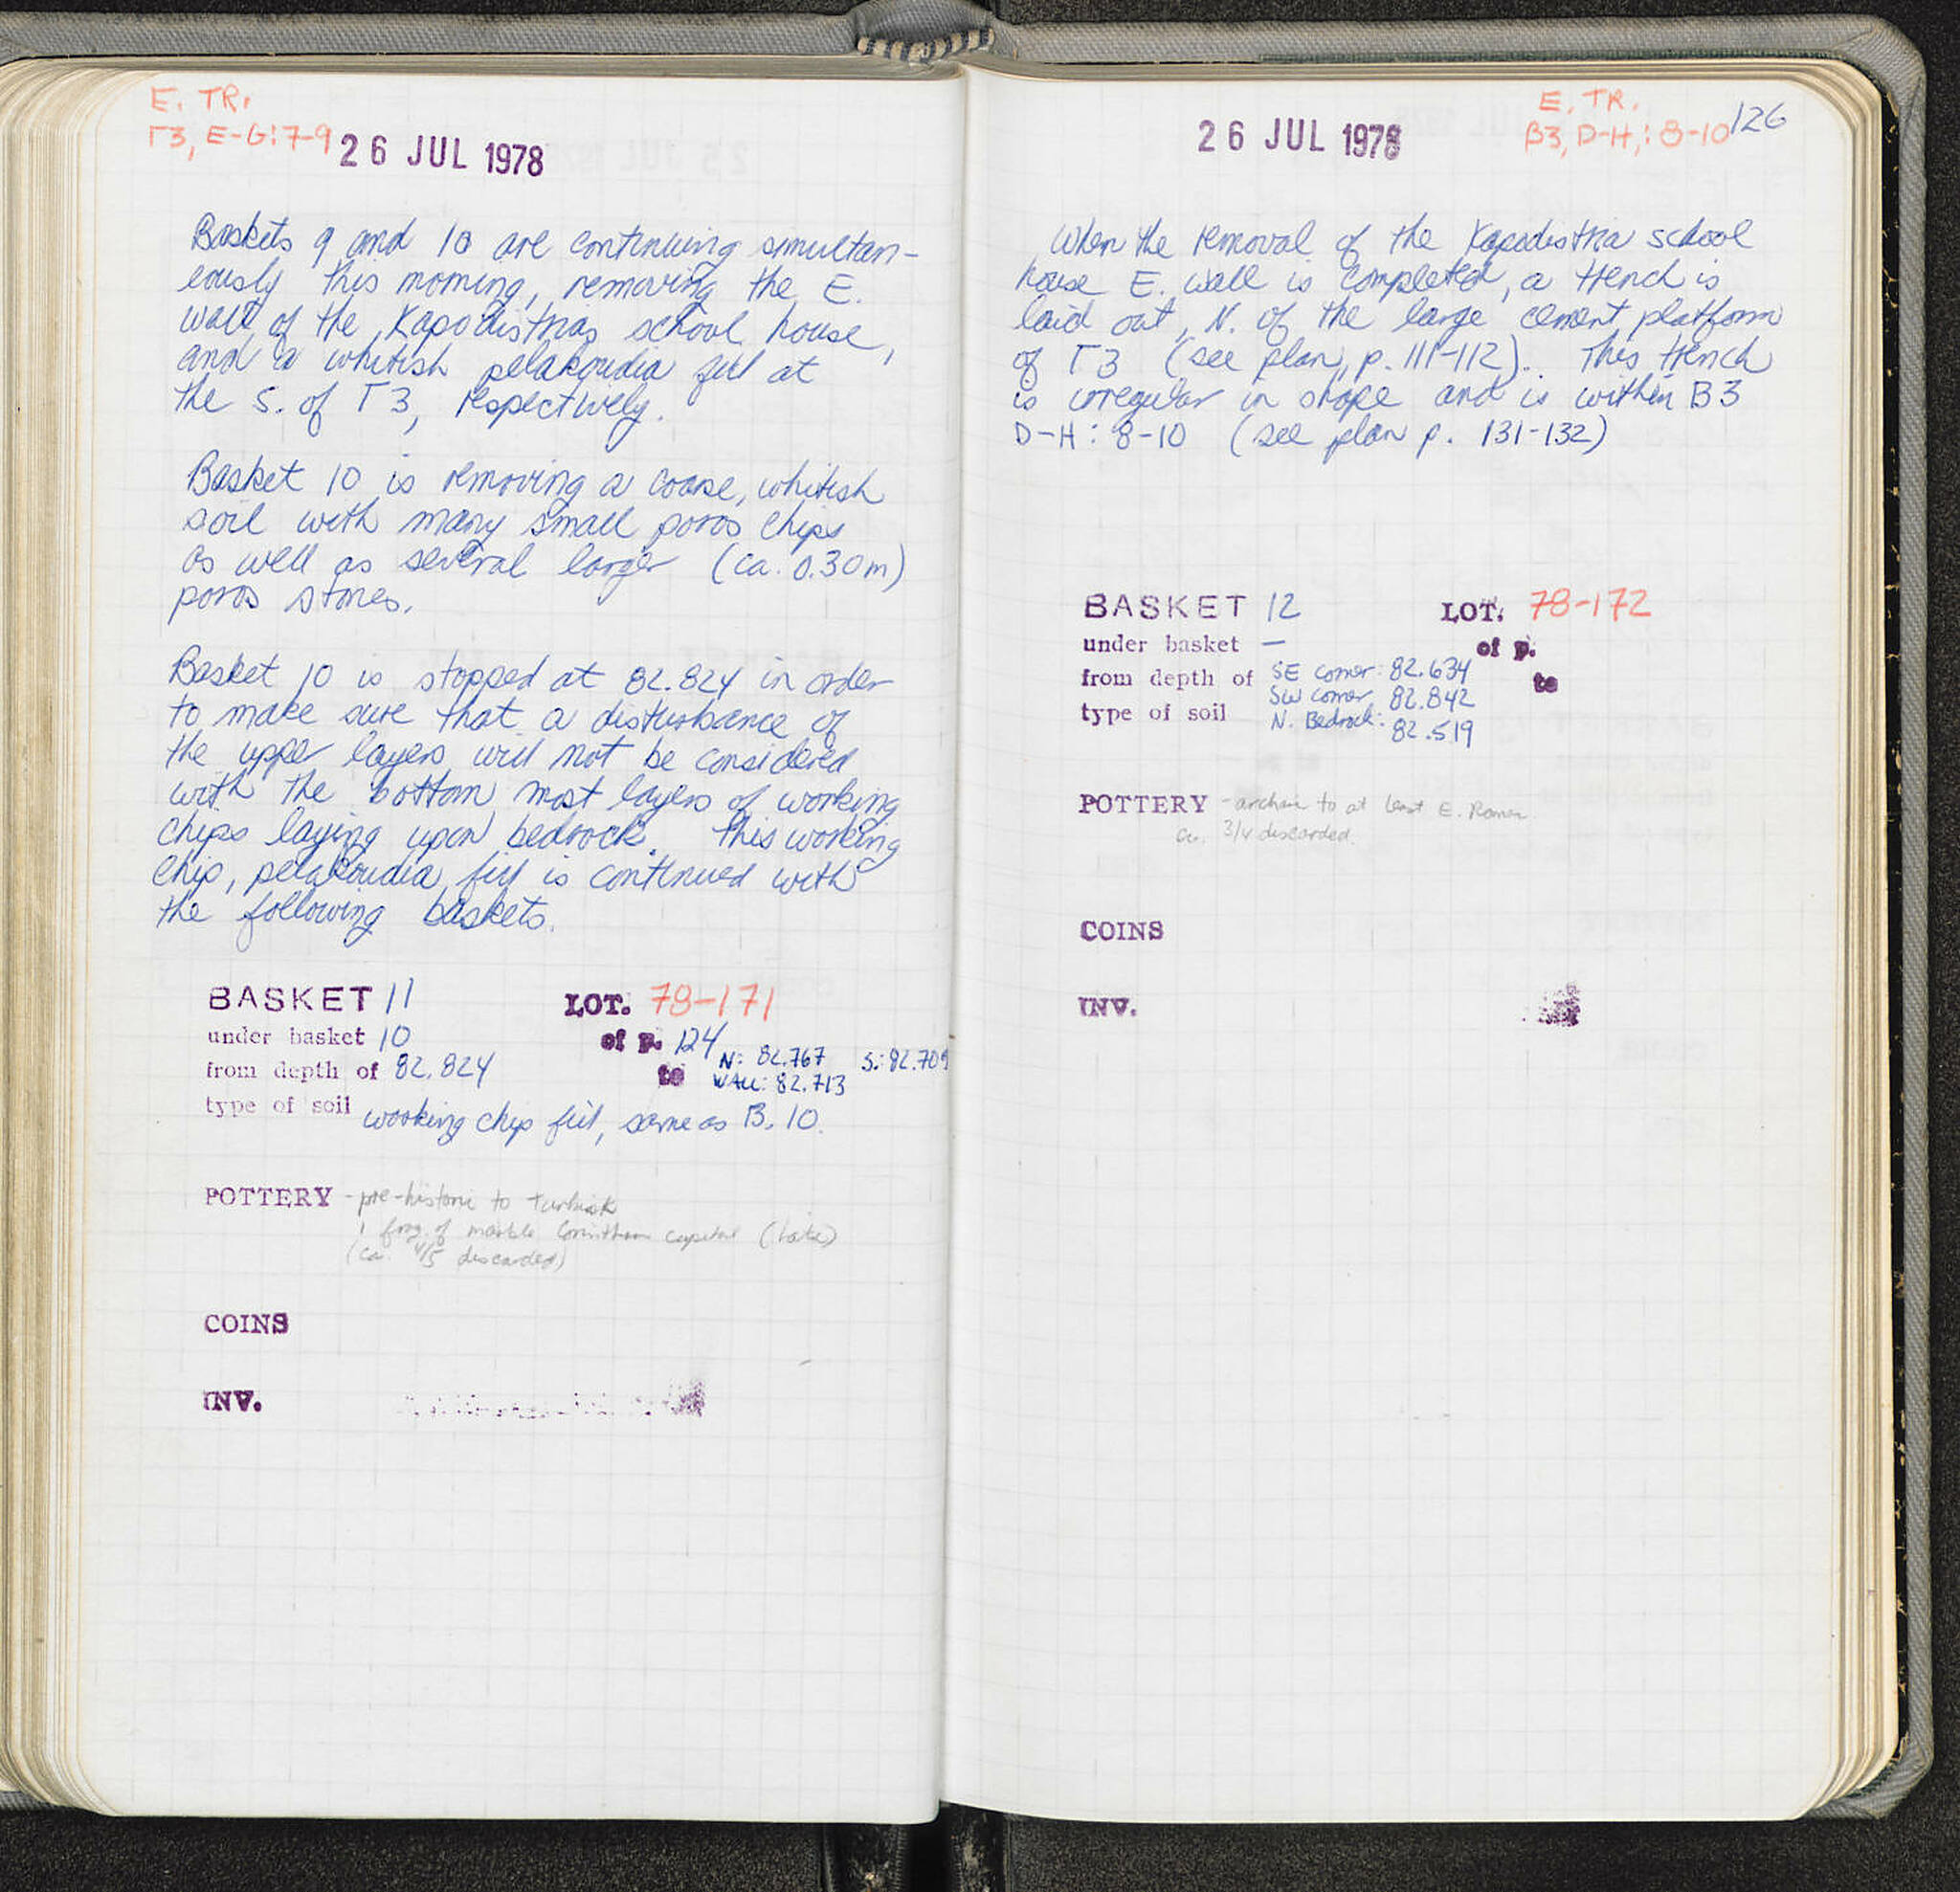 E. TR.
Γ3, E-G:7-9
26 JUL 1978
Baskets 9 and 10 are continuing simultan-
eously this morning, removing the E.
wall of the Kapodistrias school house,
and a whitish pelakoudia fill at
the S. of Γ3, respectively.
Basket 10 is removing a coarse, whitish
soil with many small poros chips
as well as several larger (ca. 0.30m)
poros stones.
Basket 10 is stopped at 82.824 in order
to make sure that a disturbance of
the upper layers will not be considered
with the bottom most layers of working
chips laying upon bedrock. This working
chip, pelakoudia fill is continued with
the following baskets.
BASKET 11 LOT. 78-171
under basket 10 of p. 124
from depth of 82.824 to N: 82.767 S.: 82.709
WALL: 82.713
type of soil working chip fill, same as B. 10.
POTTERY - pre-historic to Turkish
1 frag. of marble Corinthian capital (Late)
(ca. 4/5 discarded)
COINS
INV.
26 JUL 1978
E. TR.
B3, D-H,: 8-10
126
When the removal of the Kapodistria school
house E. wall is completed, a trench is
laid out, N. of the large cement platform
of Γ3 (see plan, p. 111-112). This trench
is irregular in shape and is within B3
D-H: 8-10 (see plan p. 131-132)
BASKET 12 LOT. 78-172
under basket — of p.
from depth of SE corner: 82.634 to
SW corner 82.842
type of soil N. Bedrock: 82.519
POTTERY - archaic to at least E. Roman
ca. 3/4 discarded.
COINS
INV.